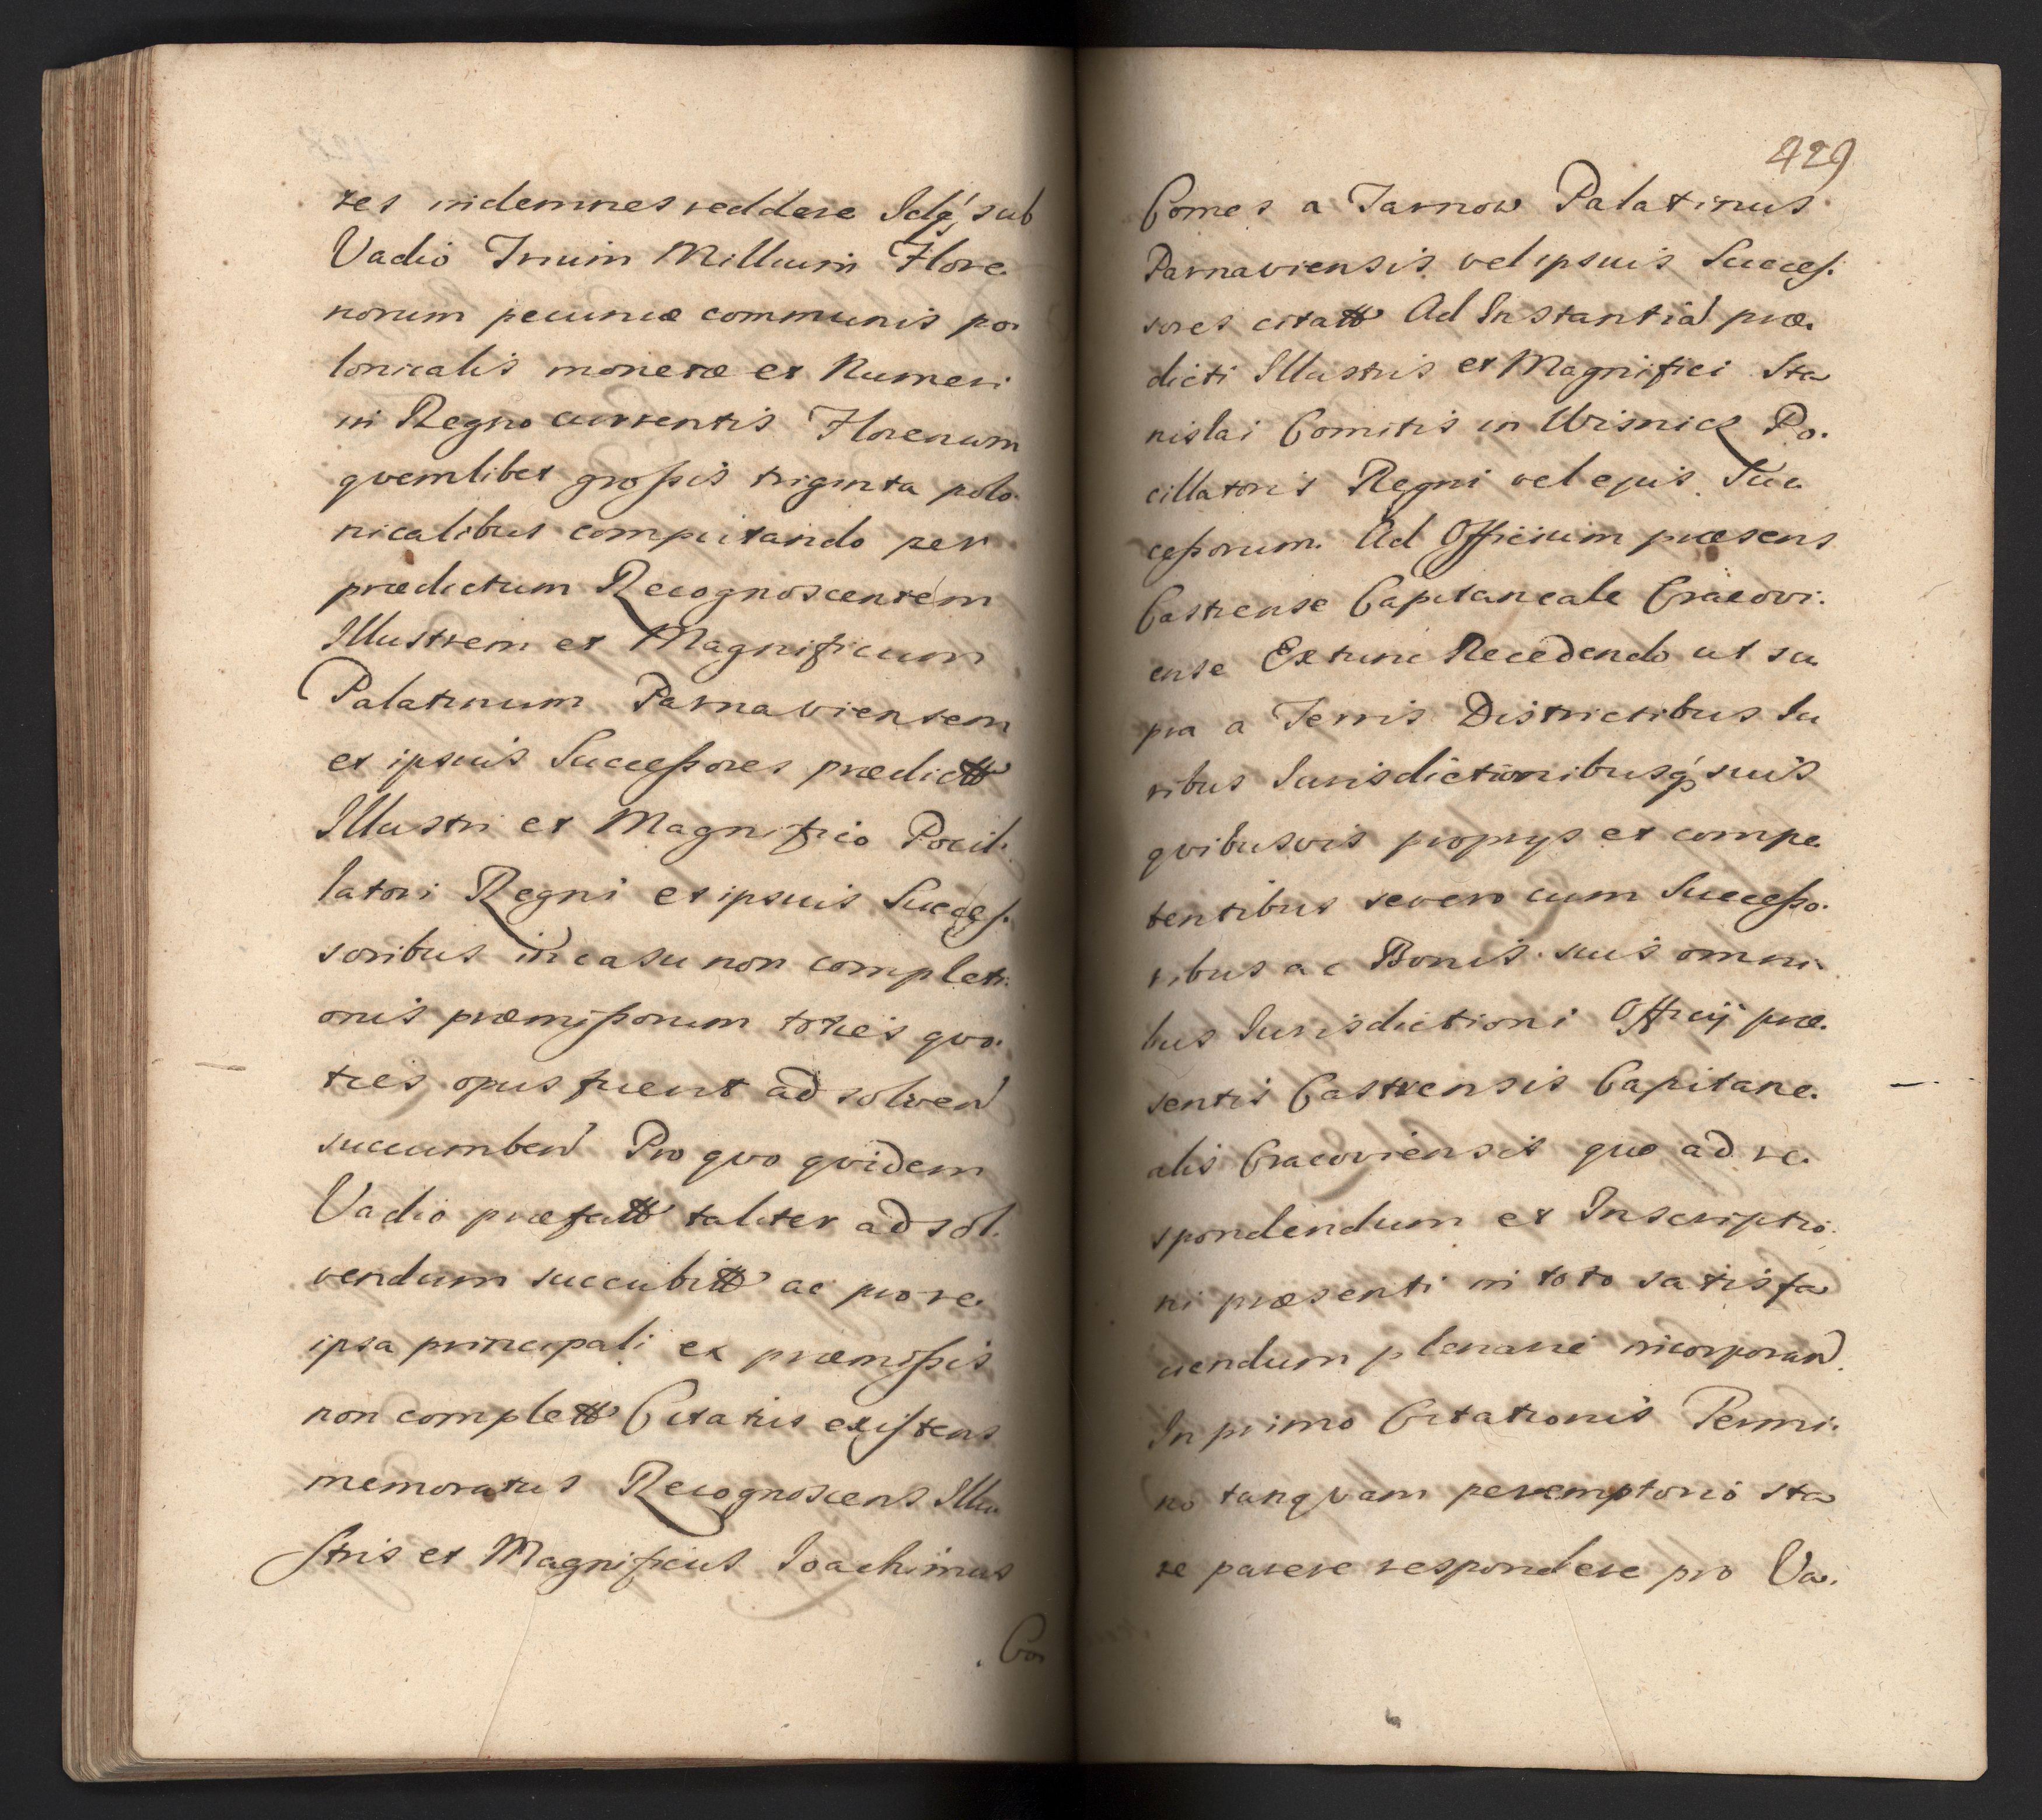 res indemnes reddere Idq́; sub
Vadio Trium Millium Flore
norum pecuniæ communis po
lonicalis monetæ et Numeri
in Regno currentis Florenum
qvemlibet grossis triginta polo
nicalibus computando per
prædictum Recognoscentem
Illustrem et Magnificum
Palatinum Parnaviensem
et ipsius Successores prædictt
Illustri et Magnifico Pocil.
latori Regni et ipsius Succes.
soribus in casu non completi
onis præmissorum toties qvo.
ties opus fuerit ad solven
succumben Pro qvo qvidem
Vadio præfatt taliter ad sol.
vendum succubitt ac pro re
ipsa principali ex præmissis
non complett Citatus existens
memoratus Recognoscens Illu
stris et Magnificus Ioachimus
Co
429
Comes a Tarnow Palatinus
Parnaviensis vel ipsius Succes.
sores citatt Ad Instantia præ.
dicti Illustris et Magnifici Sta
nislai Comitis in Wisnicz Po.
cillatoris Regni vel ejus Suc
cessorum. Ad Officium præsens
Castrense Capitaneale Cracovi.
ense Extunc Recedendo ut su
pra a Terris Districtibus Iu
ribus Iurisdictionibusq́; suis
qvibusvis proprys et compe
tentibus severo cum Successo.
ribus ac Bonis suis omni
bus Iurisdictioni Officij præ.
sentis Castrensis Capitane.
alis Cracoviensis quo ad re.
spondendum et Inscriptio.
ni præsenti in toto satisfa
ciendum plenarie incorporan
In primo Citationis Termi.
no tanqvam peremptorio sta
re parere respondere pro Va.